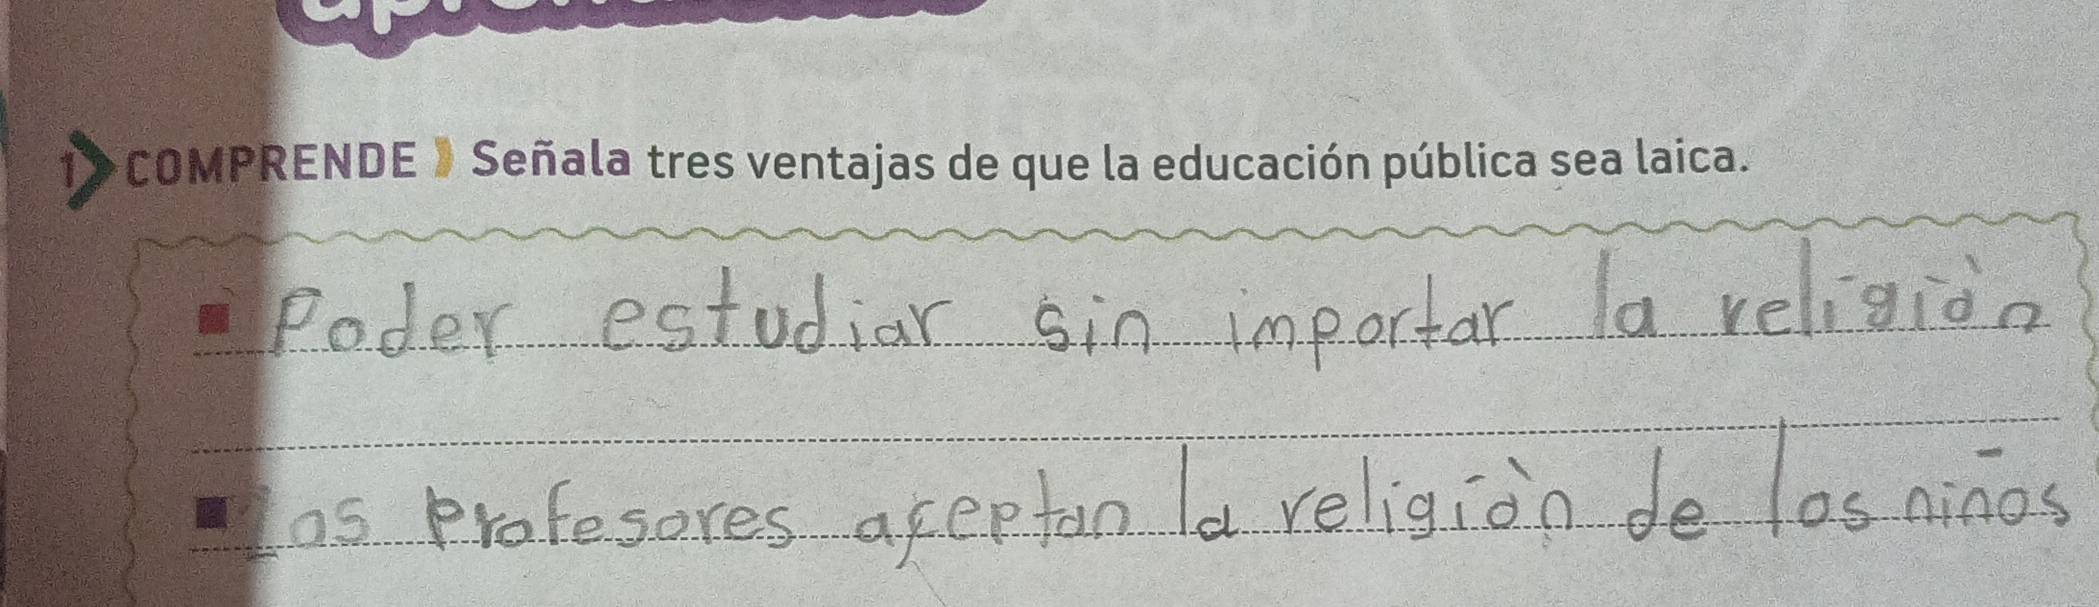 1 COMPRENDE Señala tres ventajas de que la educación pública sea laica.
Poder estudiar sin importar la religiòn
Los profesores aceptan la religiòn de los niños